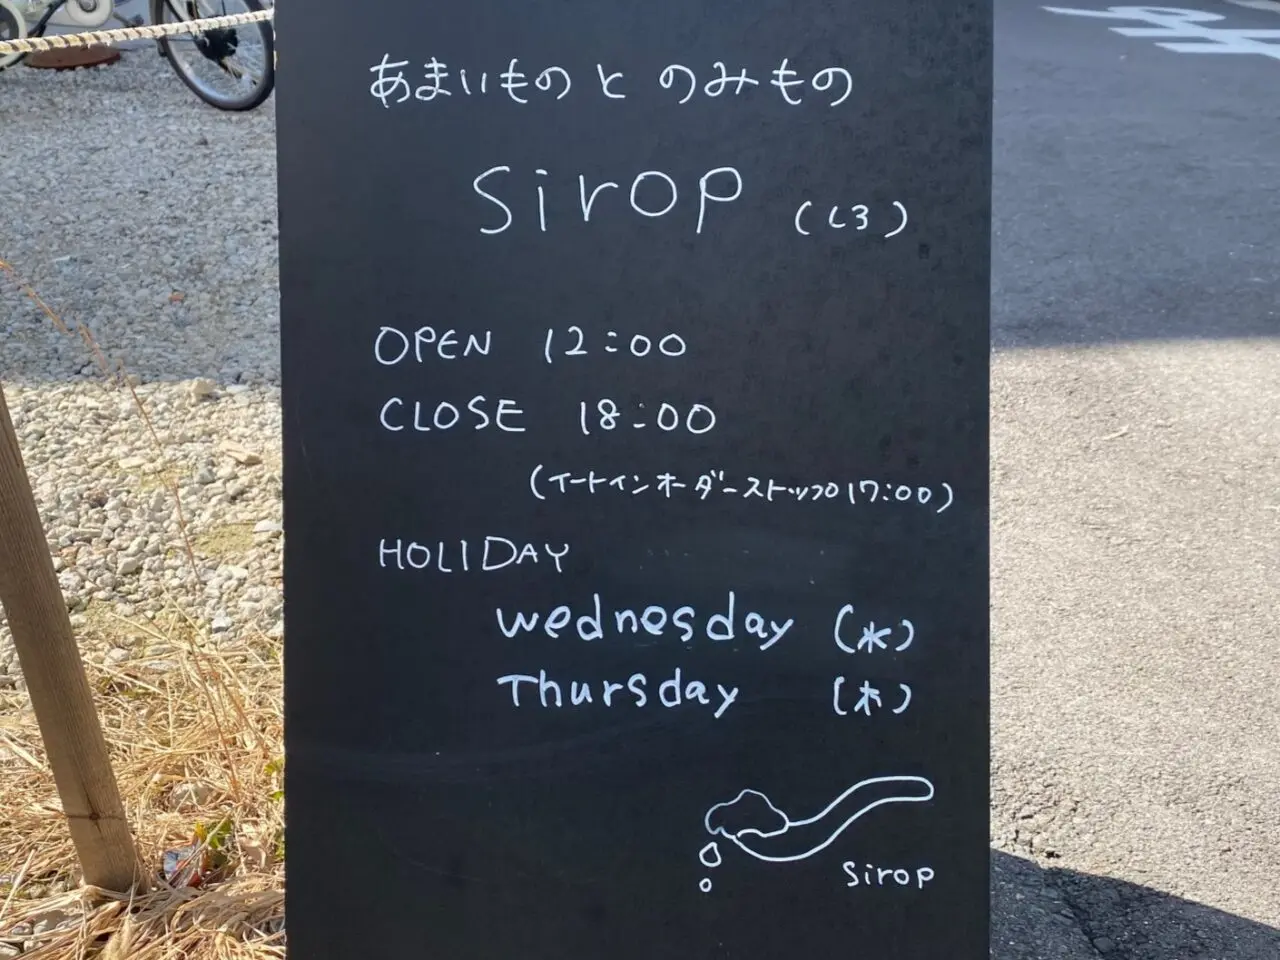 あまいものと のみもの
Sirop (しろ)
OPEN 12:00
CLOSE 18:00
(イートインオーダーストップ17:00)
HOLIDAY
wednesday (水)
Thursday (木)
Sirop